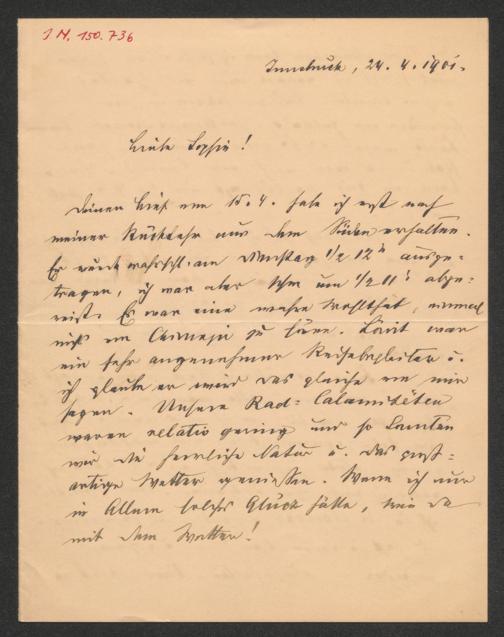 I.N. 150.736
Innsbruck, 24. 4. 1901.
Liebe Sophie!
Deinen Brief vom 15. 4. habe ich erst nach
meiner Rückkehr aus dem Süden erhalten.
Er wurde wahrschl. am Montag 1/2 12 h ausge-
tragen, ich war aber schon um 1/2 11 h abge-
reist. Es war eine wahre Wohlthat, einmal
nichts von Chirurgie zu hören. Lövit war
ein sehr angenehmer Reisebegleiter u.
ich glaube er wird das gleiche von mir
sagen. Unsere Rad-Calamitäten
waren relativ gering und so konnten
wir die herrliche Natur u. das groß-
artige Wetter genießen. Wenn ich nur
in Allem solches Glück hätte, wie da
mit dem Wetter!